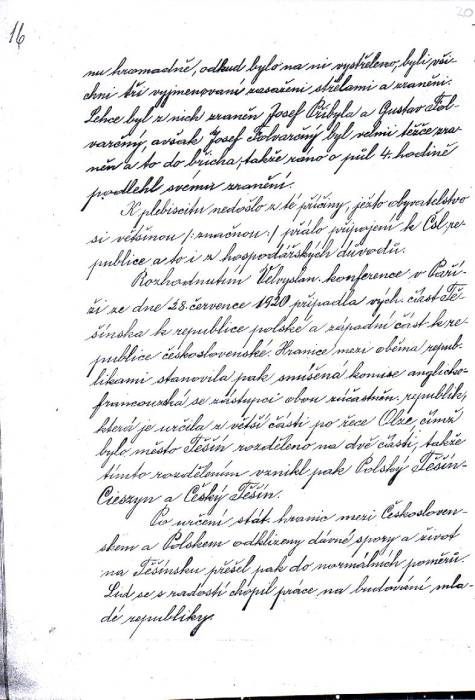 16
20
nu hromadně, odkud bylo na ni vystřeleno, byli vši-
chni tři vyjmenovaní zasaženi střelami a zraněni.
Lehce byl z nich zraněn Josef Přibyla a Gustav Fol-
varčný avšak Josef Folvarčný byl velmi těžce zra-
něn a to do břicha, takže ráno o půl 4. hodině
podlehl svému zranění.
K plebiscitu nedošlo z té příčiny, ježto obyvatelstvo
si většinou /:značnou:/ přálo připojení k Čsl. re-
publice a to i z hospodářských důvodů.
Rozhodnutím Velvyslan. konference v Paří-
ži ze dne 28. července 1920 připadla vých. část Tě-
šínska k republice polské a západní část k re-
publice československé. Hranice mezi oběma repub-
likami stanovila pak smíšená komise anglicko-
francouzská se zástupci obou zúčastněn. republik,
která je určila z větší části po řece Olze, čímž
bylo město Těšín rozděleno na dvě části, takže
tímto rozdělením vznikl pak Polský Těšín-
Cieszyn a Český Těšín.
Po určení stát. hranic mezi Českosloven-
skem a Polskem odklizeny dávné spory a život
na Těšínsku přešel pak do normálních poměrů.
Lid se s radostí chopil práce na budování mla-
dé republiky.